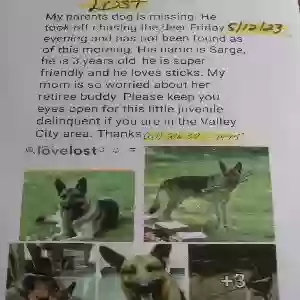 LOST
My parents dog is missing. He
took off chasing the deer Friday 5/12/23
evening and has not been found as
of this morning. His name is Sarge,
he is 3 years old. he is super
friendly and he loves sticks. My
mom is so worried about her
retiree buddy. Please keep you
eyes open for this little juvenile
delinquent if you are in the Valley
City area. Thanks
lovelost
+3